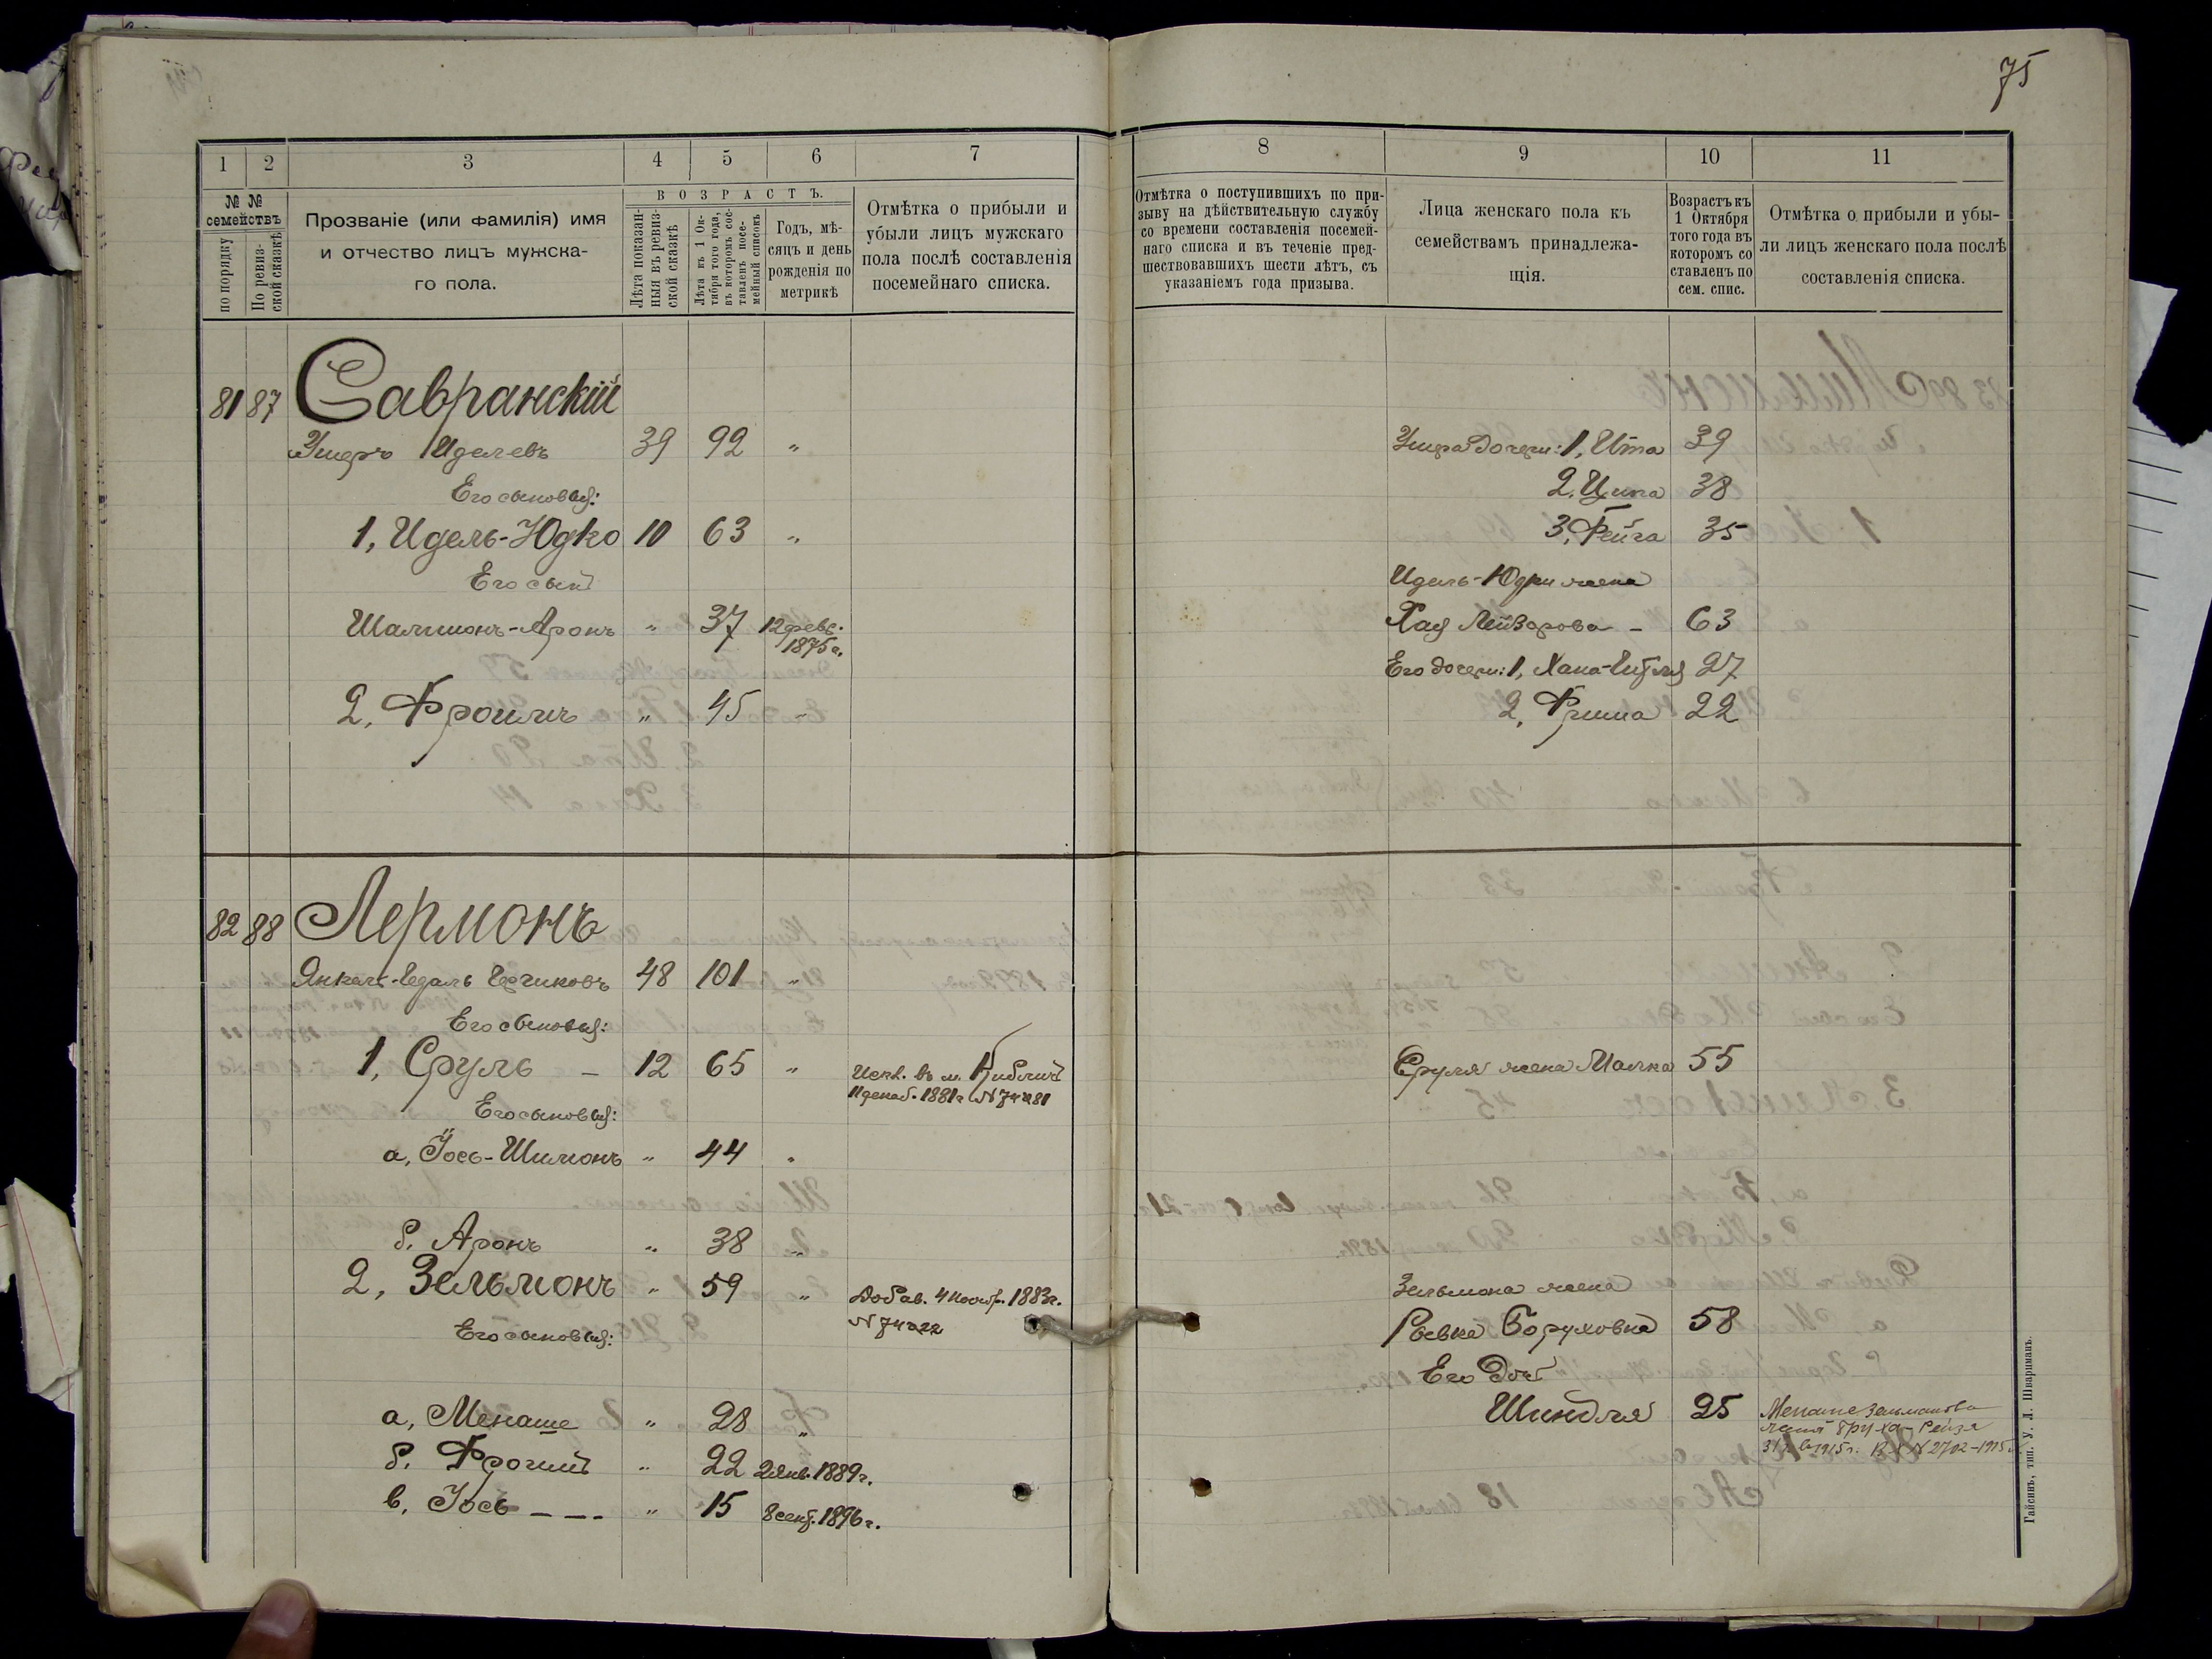 75
1
2
3
4
5
6
7
№ №
семействъ
по порядку
По ревиз-
ской сказкѣ
Прозваніе (или фамилія) имя
и отчество лицъ мужска-
го пола.
В О З Р А С Т Ъ.
Лѣта показан-
ныя въ ревиз-
ской сказкѣ
Лѣта къ 1 Ок-
тября того года,
въ которомъ сос-
тавленъ посе-
мейный списокъ
Годъ, мѣ-
сяцъ и день
рожденія по
метрикѣ
Отмѣтка о прибыли и
убыли лицъ мужскаго
пола послѣ составленія
посемейнаго списка.
81 87 Савранскій
Иделевъ 39 92 "
Его сыновья:
1, Идель-Юдко 10 63 "
Его сынъ
Шалимонъ-Аронъ " 37 12 февр.
1875 г.
2, Фроимъ " 45 "
82 88 Лермонъ
48 101 "
Его сыновья:
1, Сруль – 12 65 " въ м.
11 декаб. 1881 г.
Его сыновья:
а, Іось-Шимонъ " 44 "
б, Аронъ " 38 "
2, Зельмонъ " 59 " Добав. 4 ноябр. 1883 г.
Его сыновья:
а, Менаше " 28 "
б, Фроимъ " 22 2 янв. 1889 г.
в, Іось – – – " 15 8 сент. 1896 г.
8
9
10
11
Отмѣтка о поступившихъ по при-
зыву на дѣйствительную службу
со времени составленія посемей-
наго списка и въ теченіе пред-
шествовавшихъ шести лѣтъ, съ
указаніемъ года призыва.
Лица женскаго пола къ
семействамъ принадлежа-
щія.
Возрастъ къ
1 Октября
того года въ
которомъ со
ставленъ по
сем. спис.
Отмѣтка о прибыли и убы-
ли лицъ женскаго пола послѣ
составленія списка.
дочери: 1, Ита 39
2, Ципа 38
3, Фейга 35
Идель-Юдки жена
Хая Лейзорова – 63
Его дочери: 1, 27
2, 22
Сруля жена Малка 55
Зельмона жена
Рывка Боруховна 58
Его дочь
Шиндля 25 Менаше Зельманова
жена Рейзя
31 л. въ 1915 г. № 2702–1915
Гайсинъ, тип. У. Л. Шваримань.